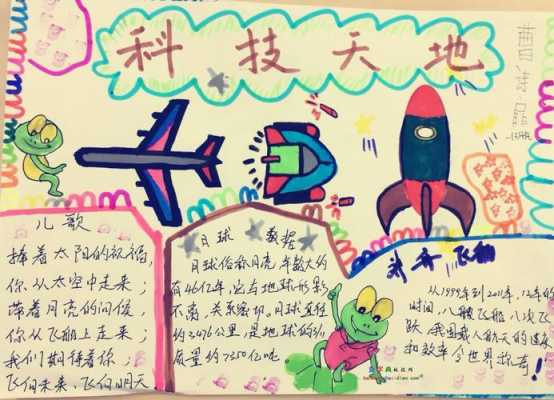 科技天地
儿歌
捧着太阳的祝福,
你从太空中走来;
带着月亮的问候,
你从飞船上走来;
我们期待着你;
飞向未来、飞向明天
月球 数据
月球俗称月亮 年龄大约
有46亿年,它与地球形影
不离,关系密切,月球直径
约3476公里,是地球的3/11
质量约7350亿吨
飞船
从1999年到2011年,12年的
时间,八艘飞船,八次飞
跃,我国载人航天的速度
和效率令世界称奇!